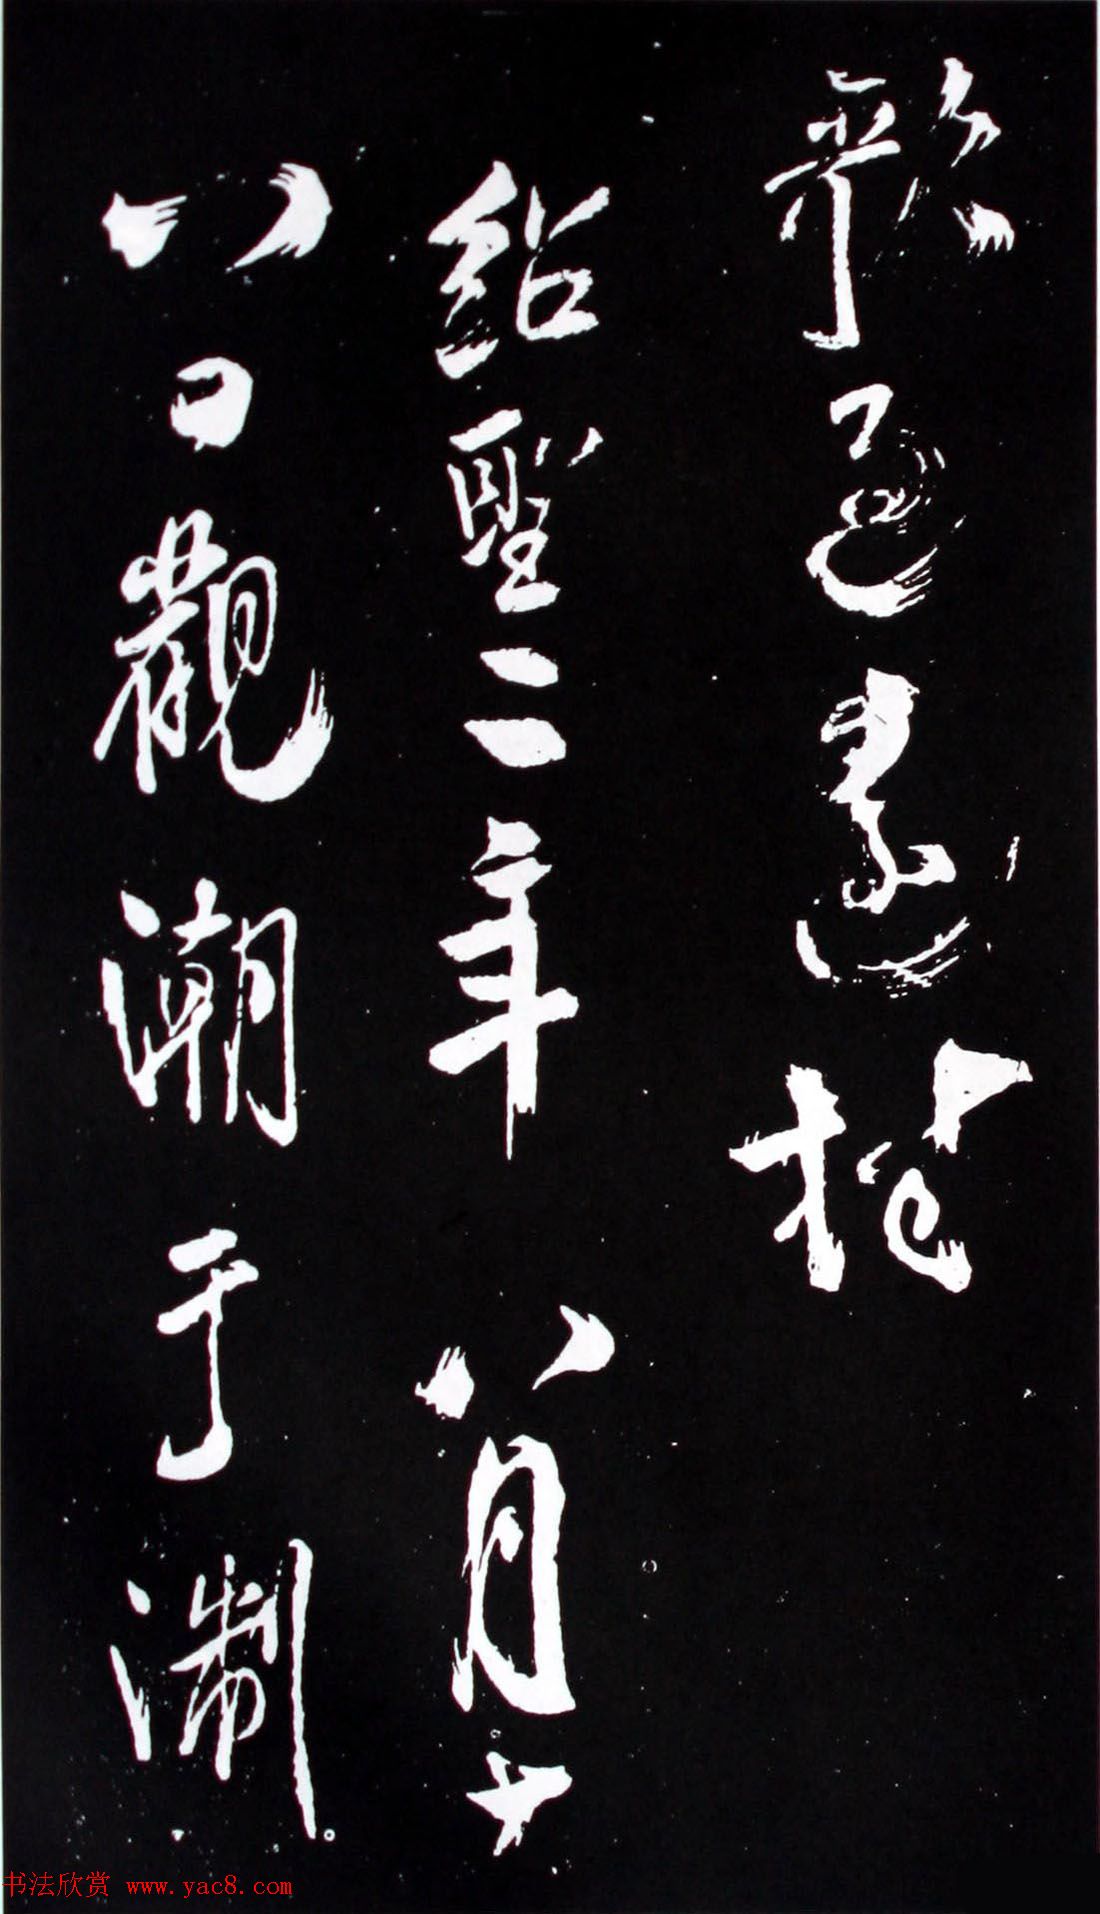 歌已遠抱
紹聖二年八月十
八日觀潮于淛
书法欣赏 www.yac8.com